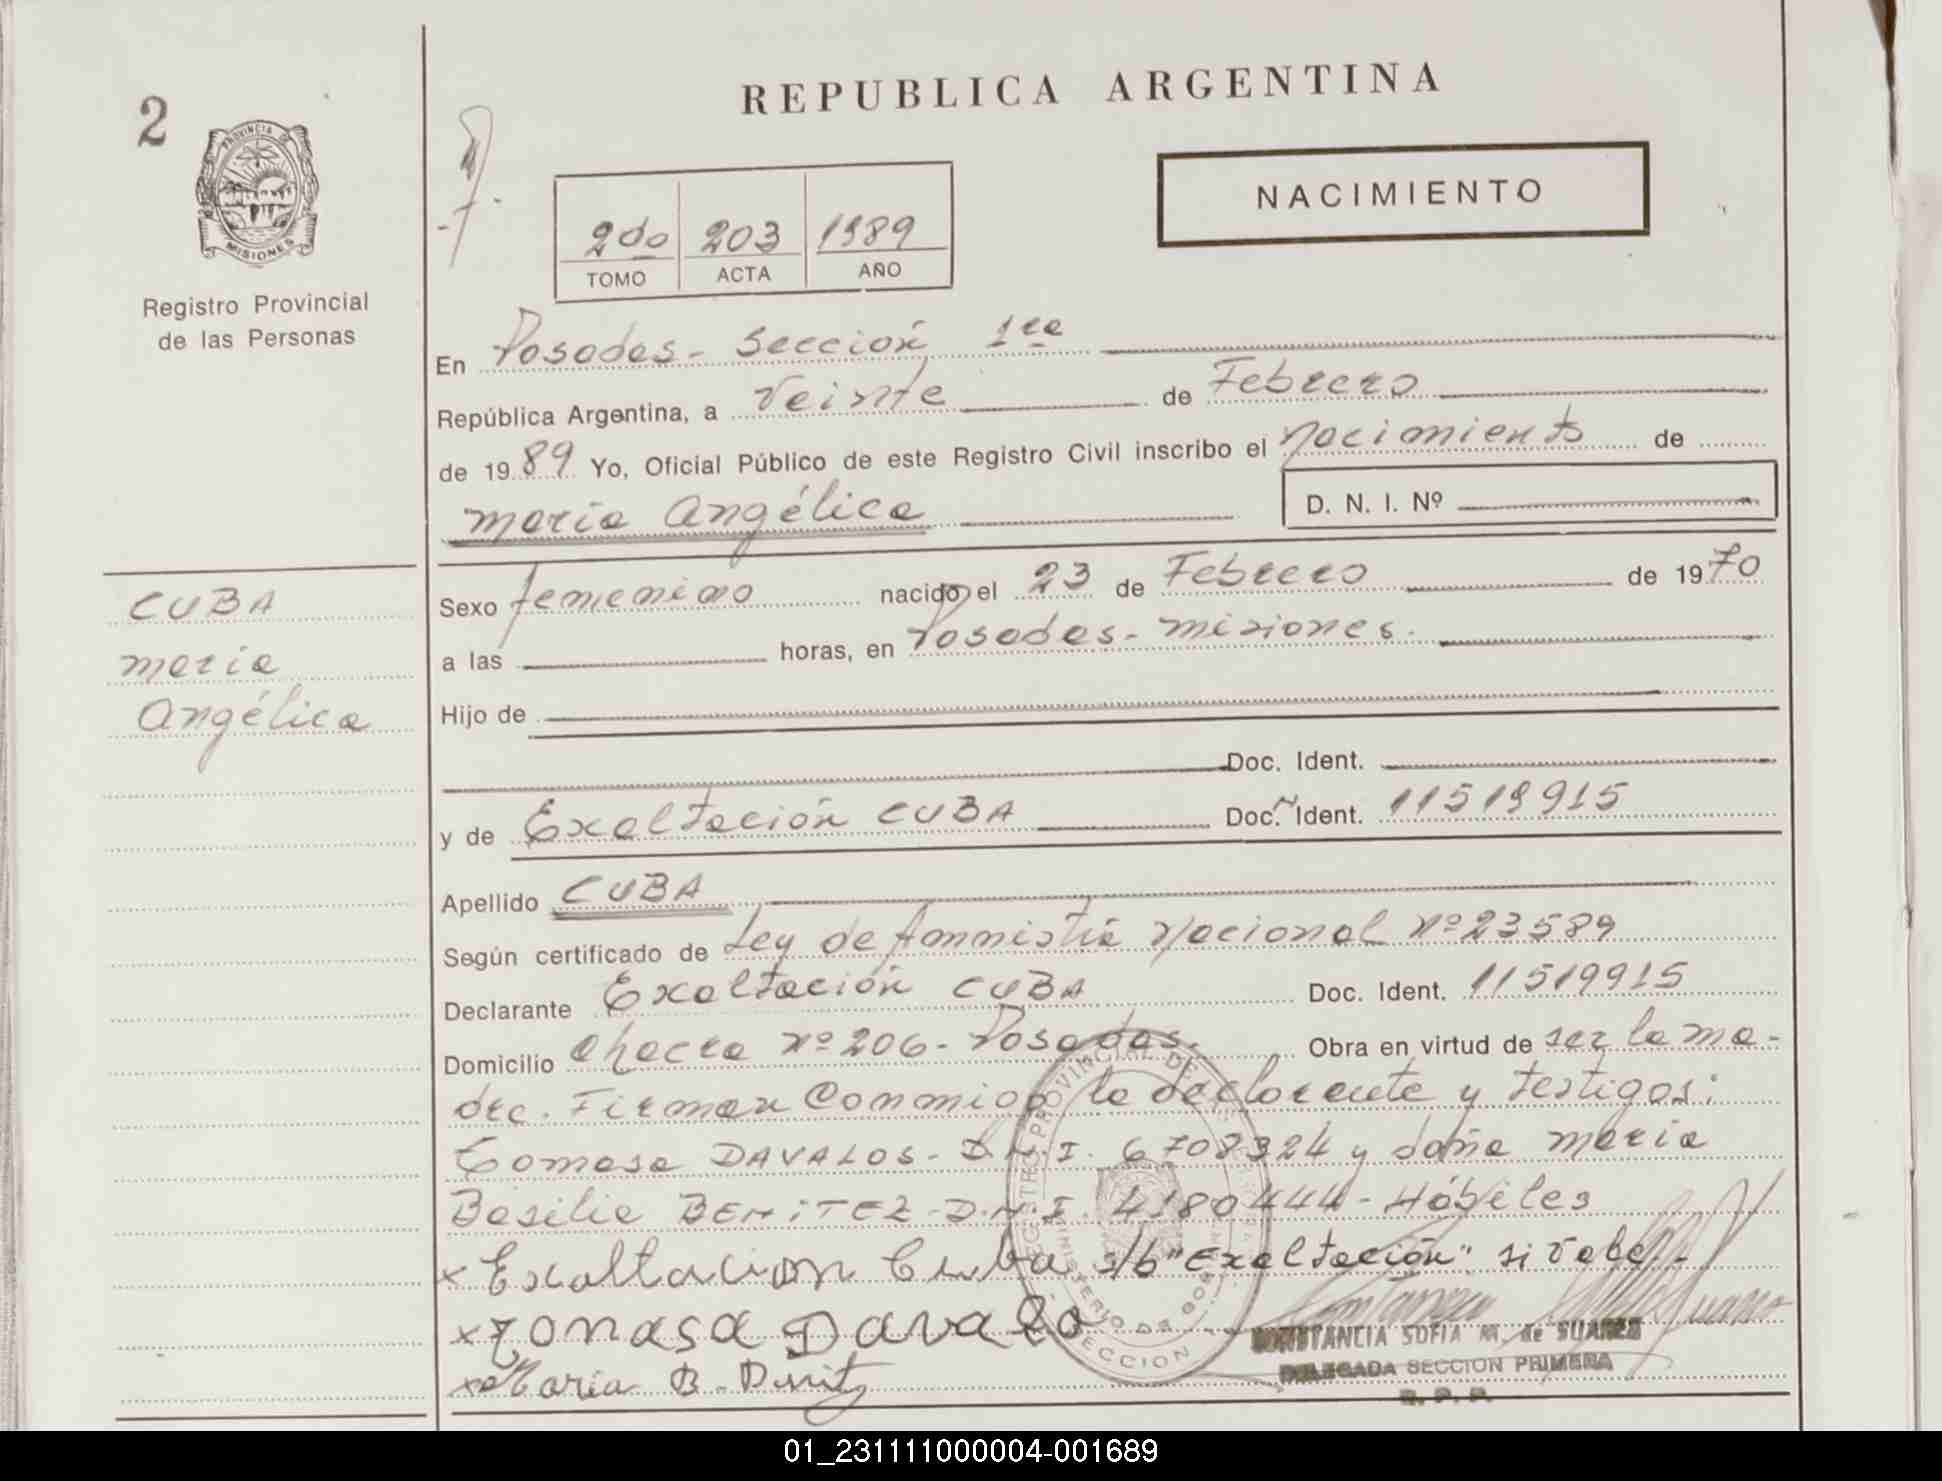 2
PROVINCIA DE
MISIONES
Registro Provincial
de las Personas
REPUBLICA ARGENTINA
NACIMIENTO
2do 203 1989
TOMO ACTA AÑO
En Posadas - Sección 1ra
República Argentina, a Veinte de Febrero
de 1989 Yo, Oficial Público de este Registro Civil inscribo el nacimiento de
maria Angélica D. N. I. Nº
CUBA
maria
Angélica
Sexo femenino nacido el 23 de Febrero de 1970
a las horas, en Posadas - misiones.
Hijo de
Doc. Ident.
y de Exaltación CUBA Doc. Ident. 11519915
Apellido CUBA
Según certificado de Ley de Amnistia Nacional Nº 23589
Declarante Exaltación CUBA Doc. Ident. 11519915
Domicilio Chacra Nº 206 - Posadas. Obra en virtud de ser la ma-
dre. Firman Conmigo la declarante y testigos:
Tomasa DAVALOS - D.N.I. 6708324 y doña maria
Basilia BENITEZ - D.N.I. 4180444 - Hábiles
x Exaltacion Cuba s/b "Exaltación" si vale -
x Tomasa Davalo
x Maria B.
CONSTANCIA SOFIA M. de SUAREZ
DELEGADA SECCION PRIMERA
R. P. P.
01_231111000004-001689